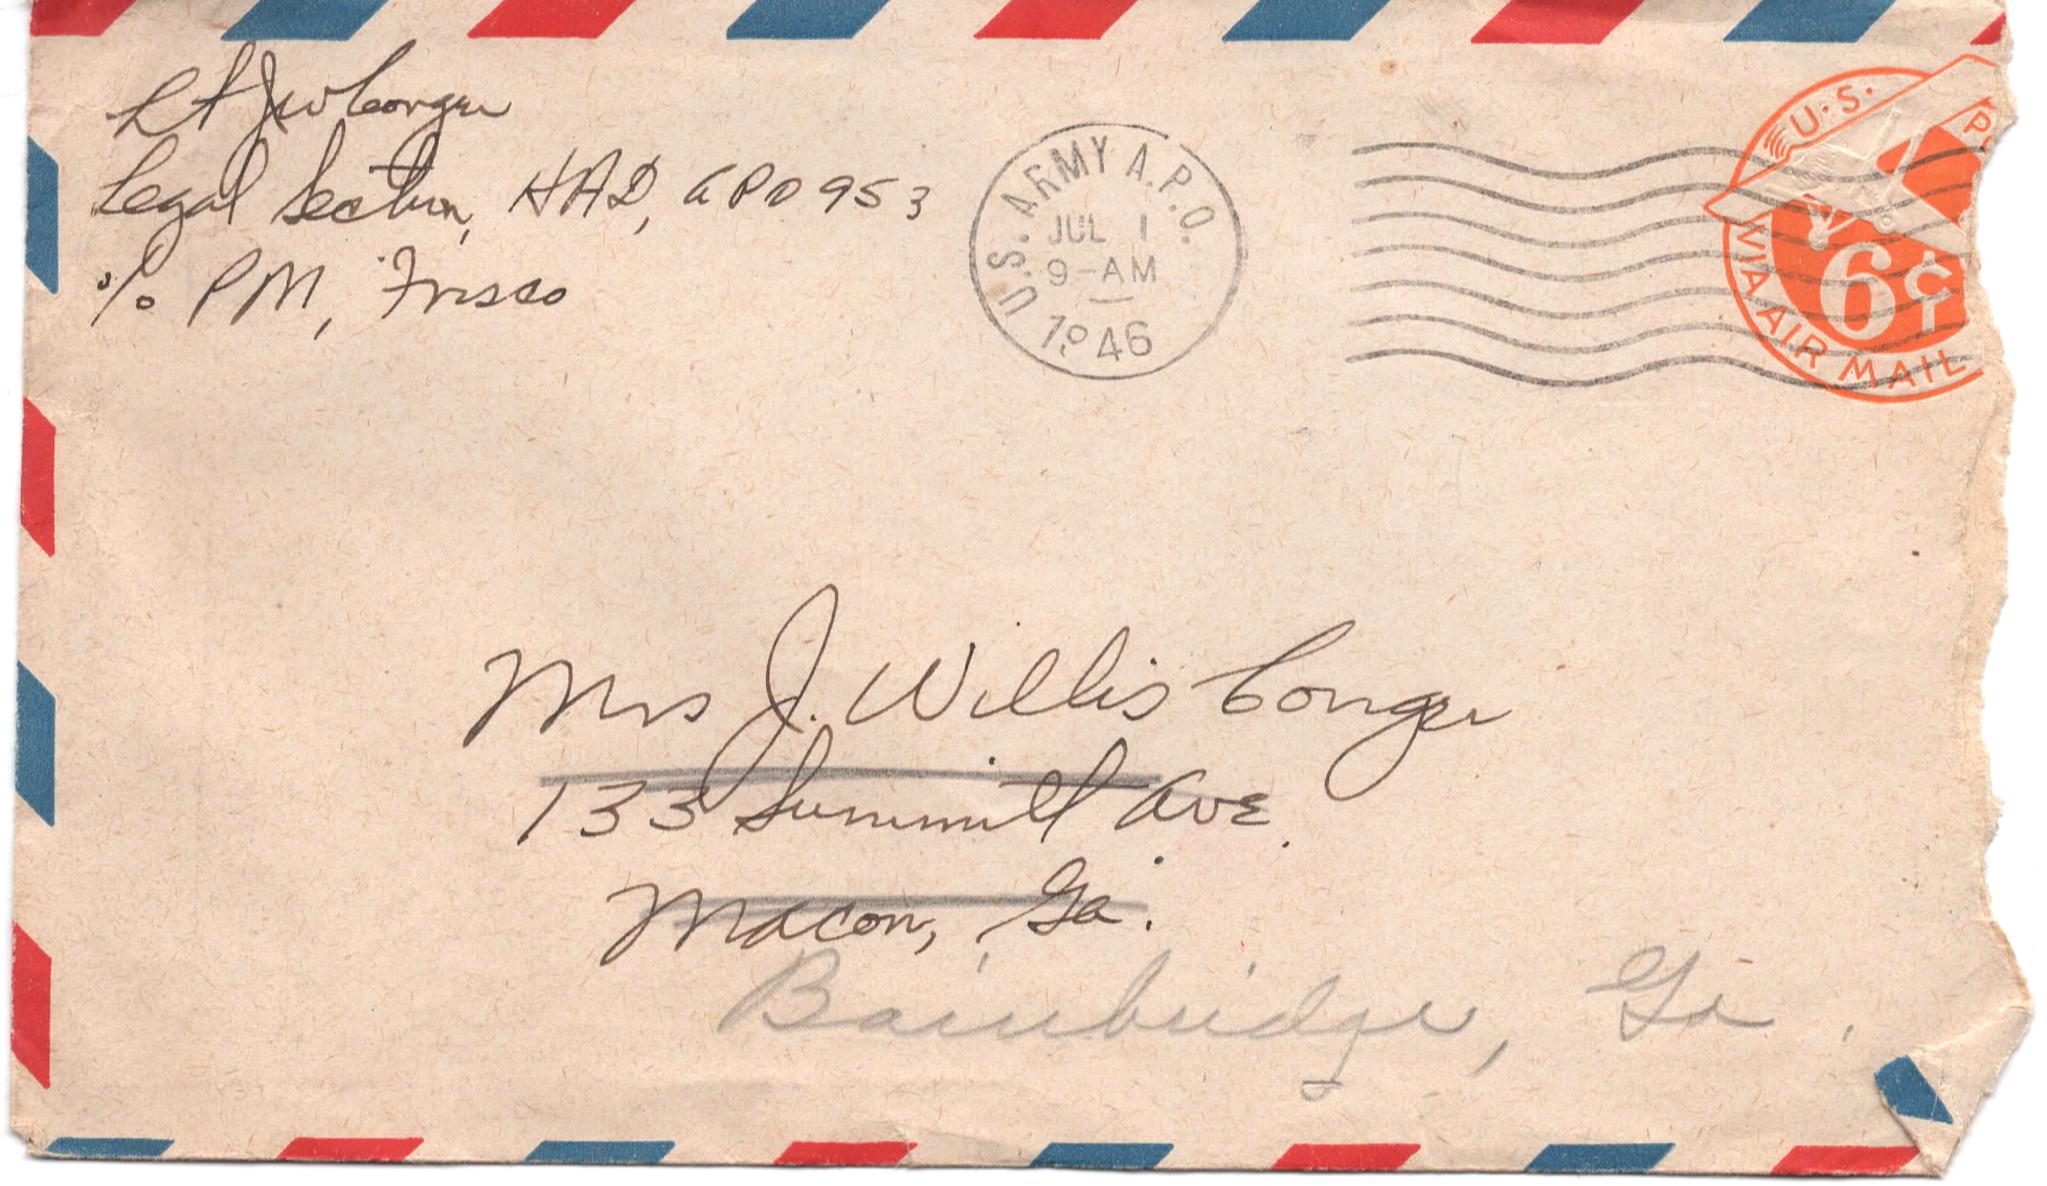 Lt JW Conger
Legal Section, HAD, APO 953
c/o PM, Frisco
U.S. ARMY A.P.O.
JUL 1
9-AM
1946
U.S. P
6¢
VIA AIR MAIL
Mrs J. Willis Conger
133 Summitt Ave.
Macon, Ga.
Bainbridge, Ga.